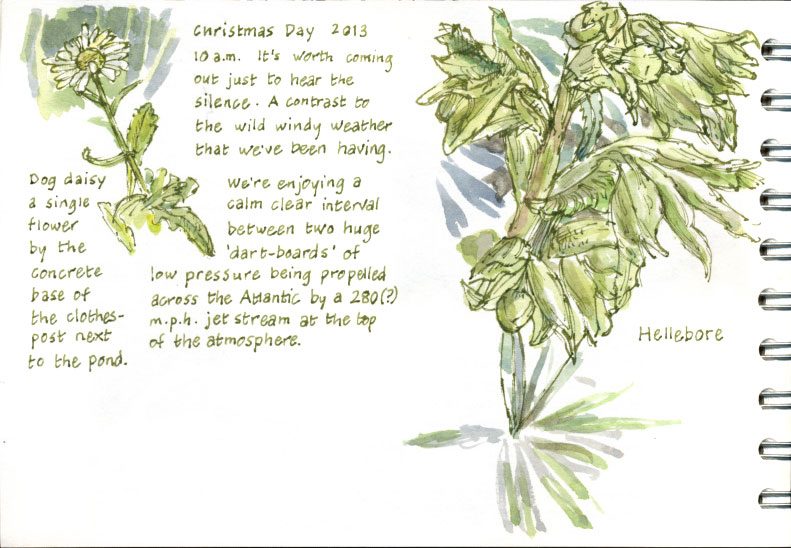 Christmas Day 2013
10 a.m. It's worth coming
out just to hear the
silence. A contrast to
the wild windy weather
that we've been having.
We're enjoying a
calm clear interval
between two huge
'dart-boards' of
low pressure being propelled
across the Atlantic by a 280(?)
m.p.h. jet stream at the top
of the atmosphere.
Dog daisy
a single
flower
by the
concrete
base of
the clothes-
post next
to the pond.
Hellebore